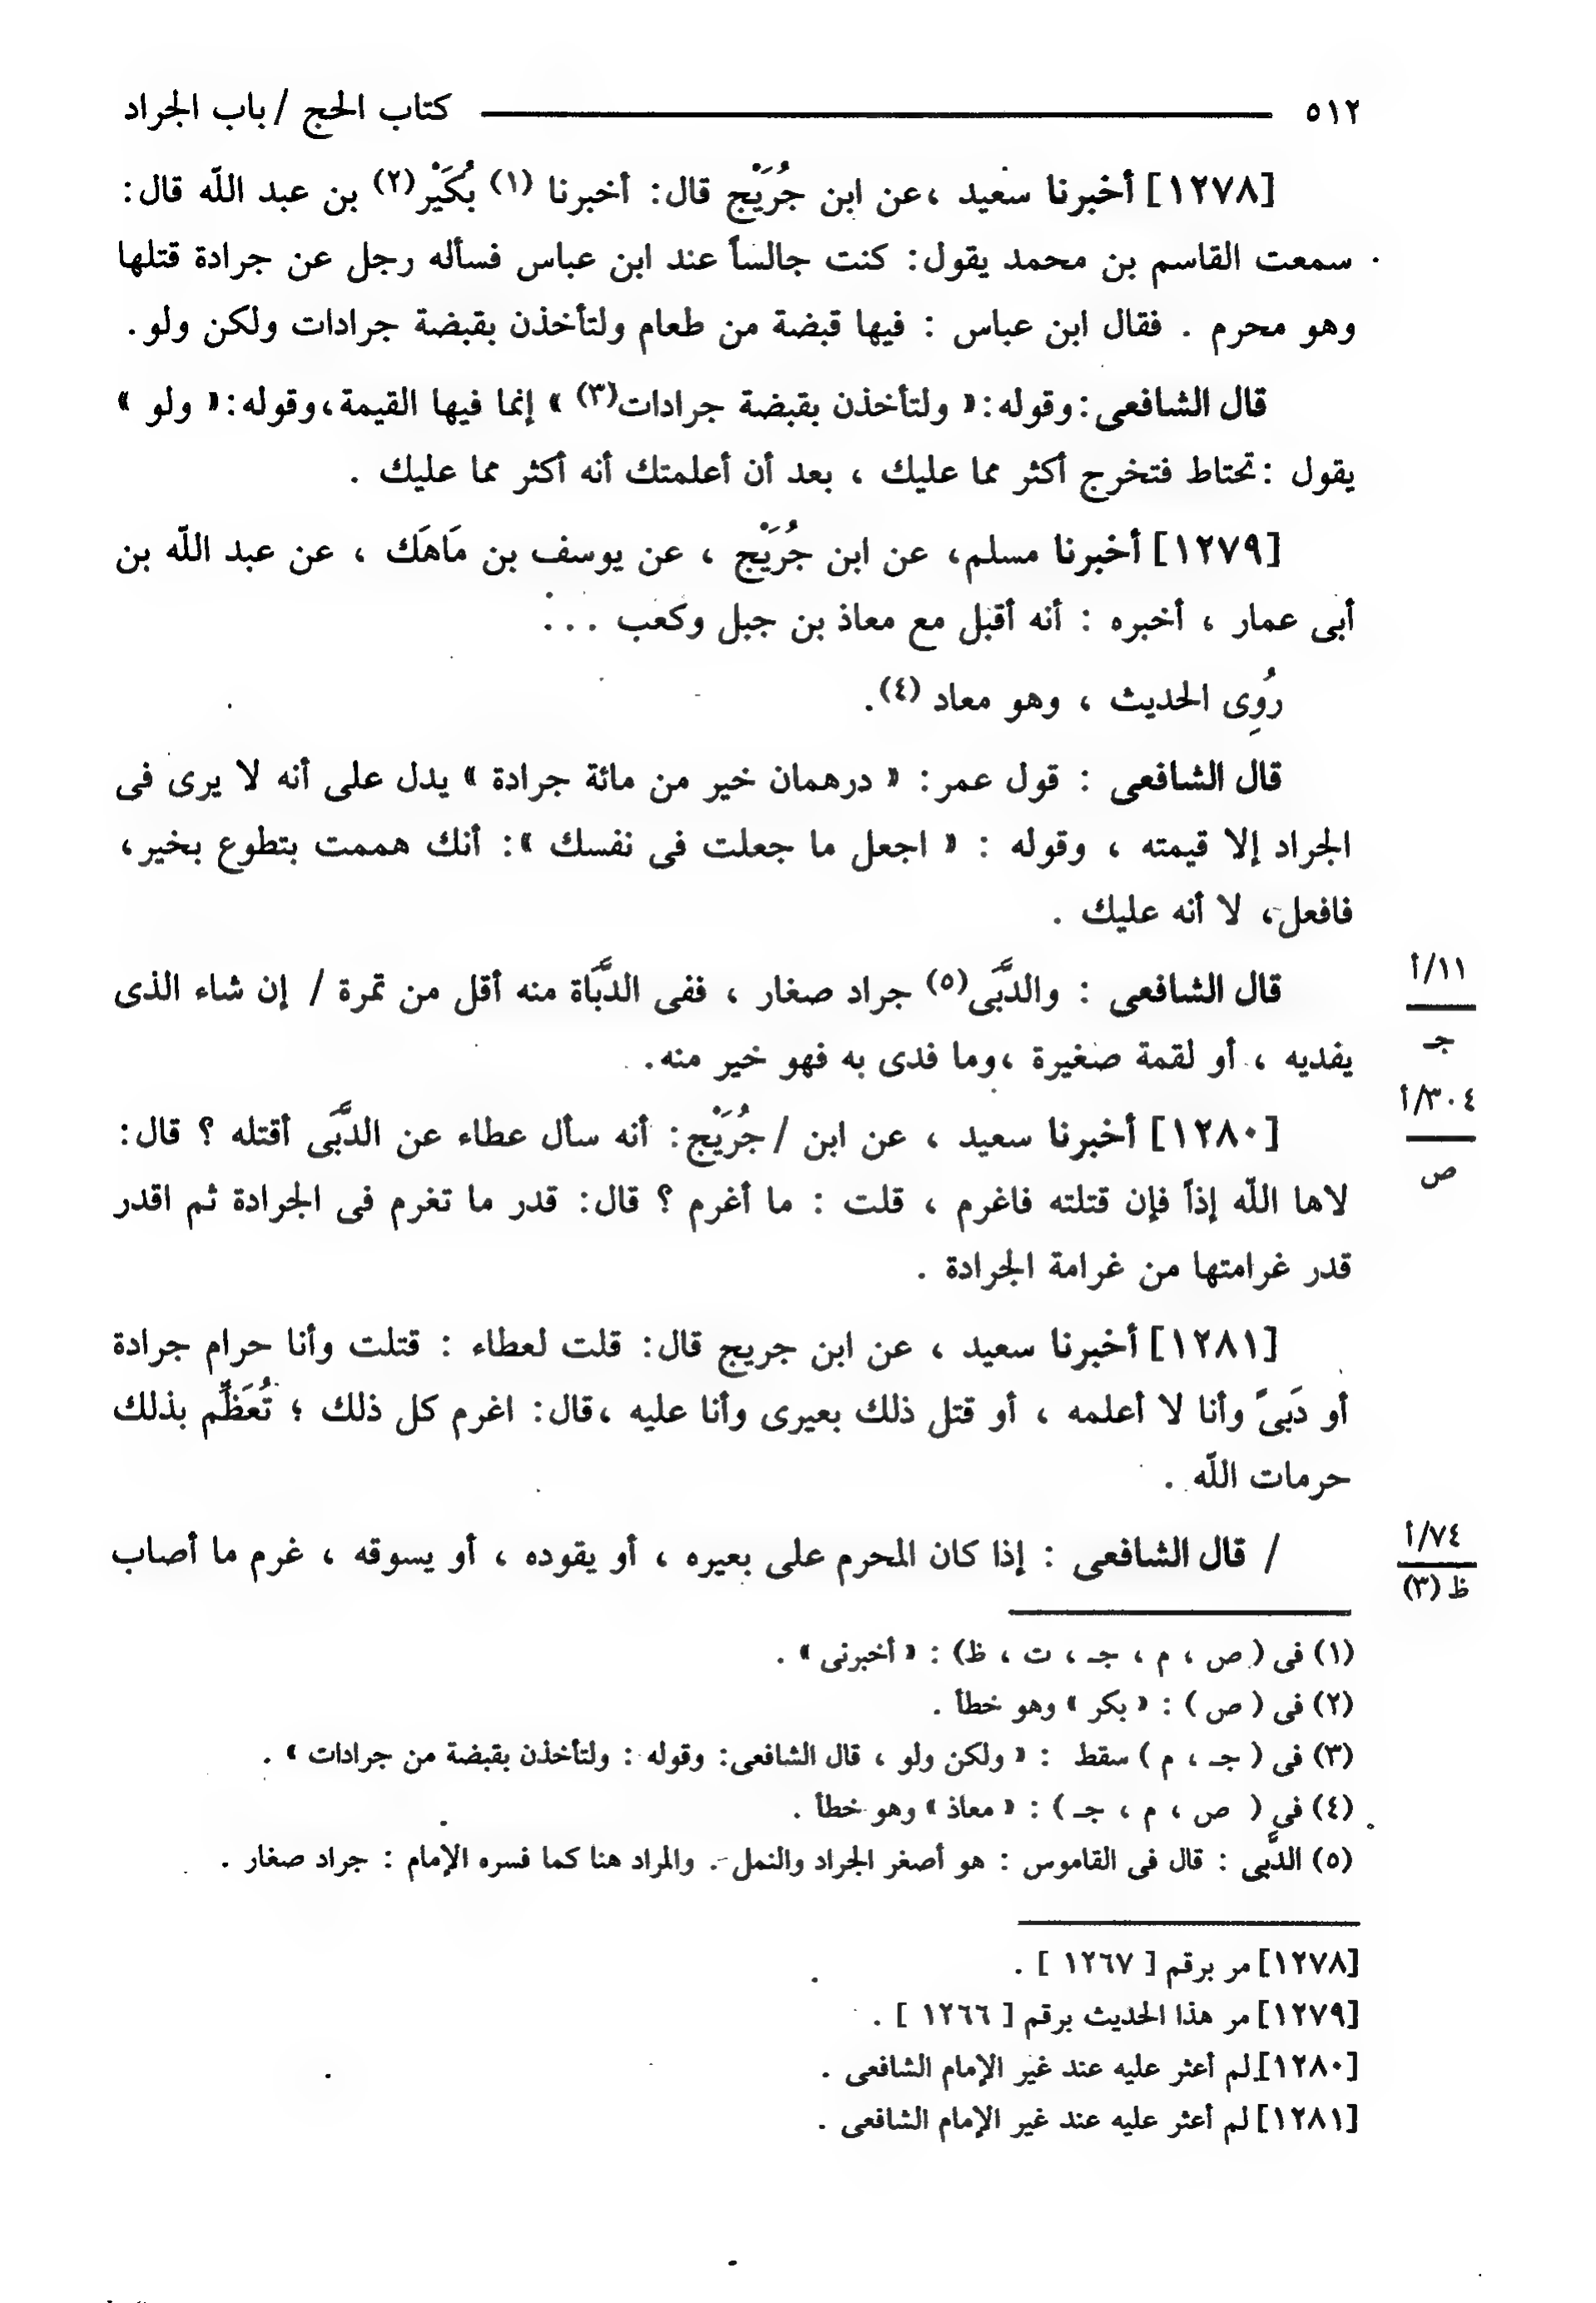 ٥١٢ كتاب الحج / باب الجراد
[١٢٧٨] أخبرنا سعيد ، عن ابن جُرَيْج قال : أخبرنا (١) بُكَيْر(٢) بن عبد اللّه قال :
سمعت القاسم بن محمد يقول : كنت جالساً عند ابن عباس فسأله رجل عن جرادة قتلها
وهو محرم . فقال ابن عباس : فيها قبضة من طعام ولتأخذن بقبضة جرادات ولكن ولو .
قال الشافعى : وقوله : « ولتأخذن بقبضة جرادات(٣) » إنما فيها القيمة ، وقوله : « ولو »
يقول : تحتاط فتخرج أكثر مما عليك ، بعد أن أعلمتك أنه أكثر مما عليك .
[١٢٧٩] أخبرنا مسلم ، عن ابن جُرَيْج ، عن يوسف بن مَاهَك ، عن عبد اللّه بن
أبى عمار ، أخبره : أنه أقبل مع معاذ بن جبل وكعب . . .
رُوِى الحديث ، وهو معاد (٤) .
قال الشافعى : قول عمر : « درهمان خير من مائة جرادة » يدل على أنه لا يرى فى
الجراد إلا قيمته ، وقوله : « اجعل ما جعلت فى نفسك » : أنك هممت بتطوع بخير ،
فافعل ، لا أنه عليك .
١١/أ
جـ
قال الشافعى : والدَّبَى(٥) جراد صغار ، ففى الدَّبَاة منه أقل من تمرة / إن شاء الذى
يفديه ، أو لقمة صغيرة ، وما فدى به فهو خير منه .
٣٠٤/أ
ص
[١٢٨٠] أخبرنا سعيد ، عن ابن / جُرَيْج : أنه سأل عطاء عن الدَّبَى أقتله ؟ قال :
لاها اللّه إذاً فإن قتلته فاغرم ، قلت : ما أغرم ؟ قال : قدر ما تغرم فى الجرادة ثم اقدر
قدر غرامتها من غرامة الجرادة .
[١٢٨١] أخبرنا سعيد ، عن ابن جريج قال : قلت لعطاء : قتلت وأنا حرام جرادة
أو دَبىً وأنا لا أعلمه ، أو قتل ذلك بعيرى وأنا عليه ، قال : اغرم كل ذلك ؛ تُعَظِّم بذلك
حرمات اللّه .
٧٤/أ
ظ (٣)
/ قال الشافعى : إذا كان المحرم على بعيره ، أو يقوده ، أو يسوقه ، غرم ما أصاب
(١) فى ( ص ، م ، جـ ، ت ، ظ) : « أخبرنى » .
(٢) فى ( ص ) : « بكر » وهو خطأ .
(٣) فى ( جـ ، م ) سقط : « ولكن ولو ، قال الشافعى : وقوله : ولتأخذن بقبضة من جرادات » .
(٤) فى ( ص ، م ، جـ ) : « معاذ » وهو خطأ .
(٥) الدَّبَى : قال فى القاموس : هو أصغر الجراد والنمل . والمراد هنا كما فسره الإمام : جراد صغار .
[١٢٧٨] مر برقم [ ١٢٦٧ ] .
[١٢٧٩] مر هذا الحديث برقم [ ١٢٦٦ ] .
[١٢٨٠] لم أعثر عليه عند غير الإمام الشافعى .
[١٢٨١] لم أعثر عليه عند غير الإمام الشافعى .